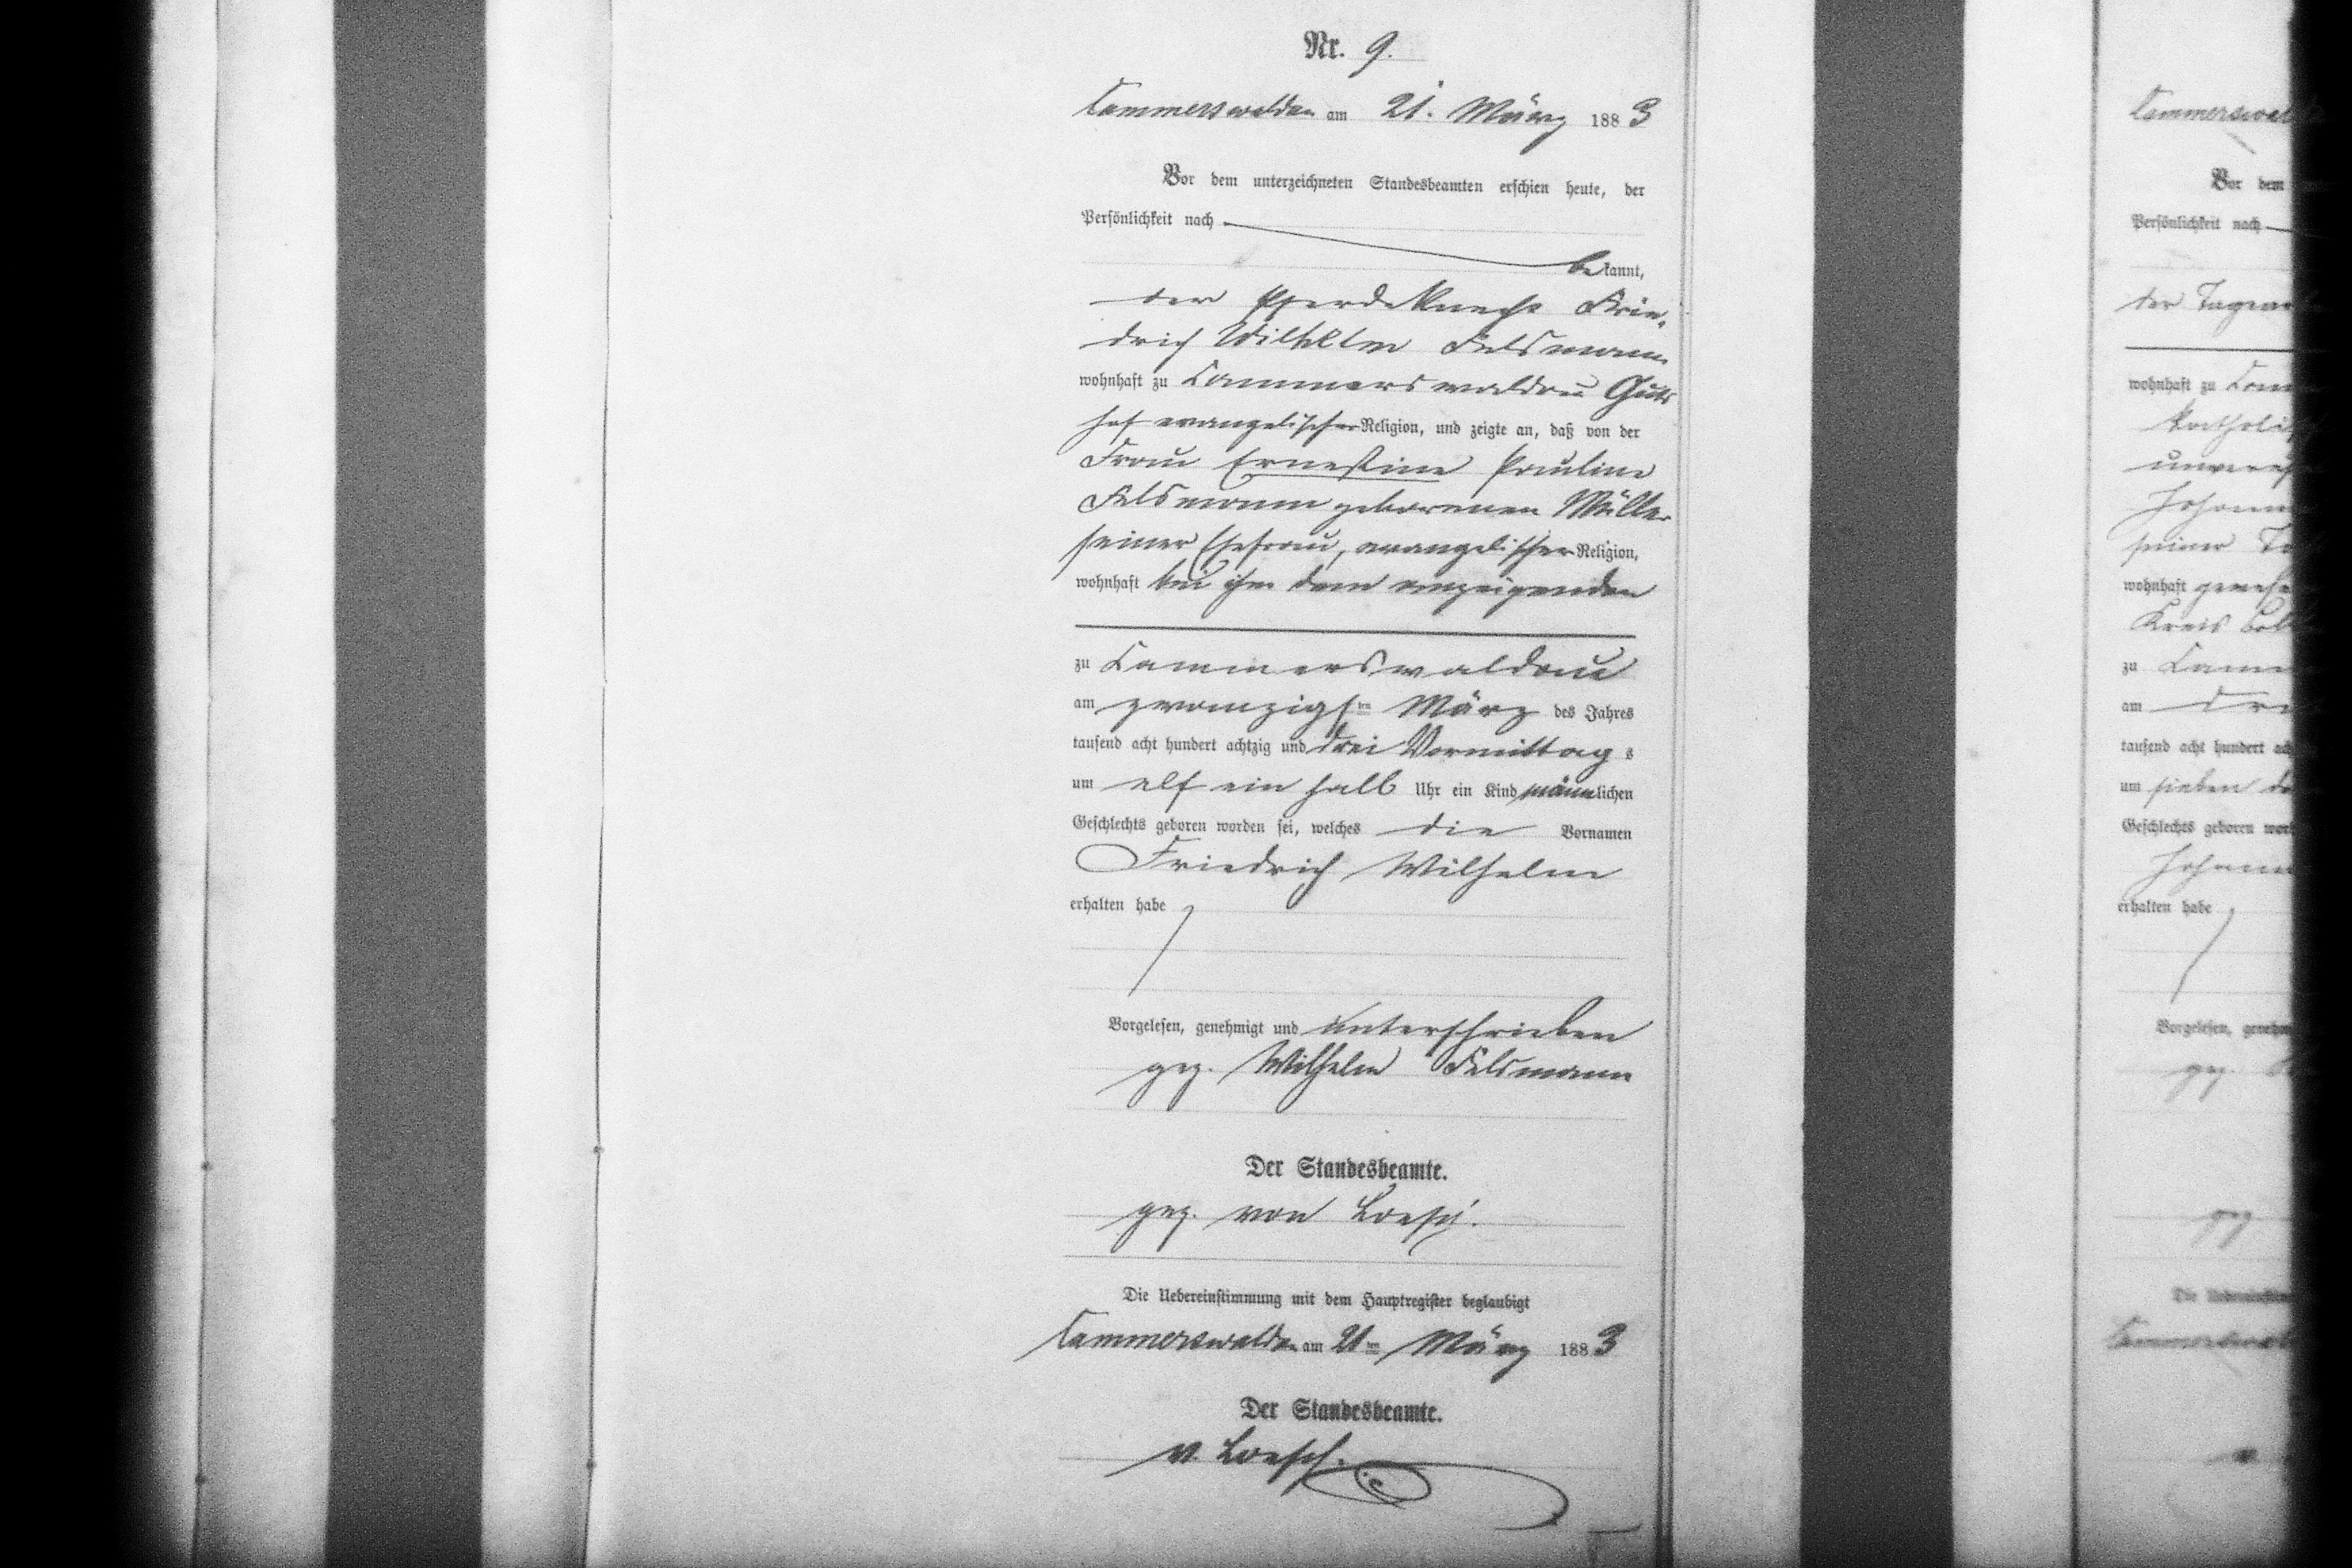 Nr. 9.
Cammerswaldau am 21. März 1883
Vor dem unterzeichneten Standesbeamten erschien heute, der
Persönlichkeit nach
bekannt,
der Pferdeknecht Frie-
drich Wilhelm Felsmann
wohnhaft zu Cammerswaldau Guts
hof evangelischer Religion, und zeigte an, daß von der
Frau Ernestine Pauline
Felsmann geborenen Müller
seiner Ehefrau, evangelischer Religion,
wohnhaft bei ihm dem anzeigenden
zu Cammerswaldau
am zwanzigsten März des Jahres
tausend acht hundert achtzig und drei Vormittags
um elf ein halb Uhr ein Kind männlichen
Geschlechts geboren worden sei, welches die Vornamen
Friedrich Wilhelm
erhalten habe
Vorgelesen, genehmigt und unterschrieben
gez. Wilhelm Felsmann
Der Standesbeamte.
gez. von Loesch.
Die Uebereinstimmung mit dem Hauptregister beglaubigt
Cammerswaldau am 21ten März 1883
Der Standesbeamte.
v. Loesch.
Vor dem
Persönlichkeit nach
der
wohnhaft zu
wohnhaft
Kreis
zu
am
tausend acht hundert
um sieben
Geschlechts geboren
erhalten habe
Vorgelesen,
gez.
gez
Die